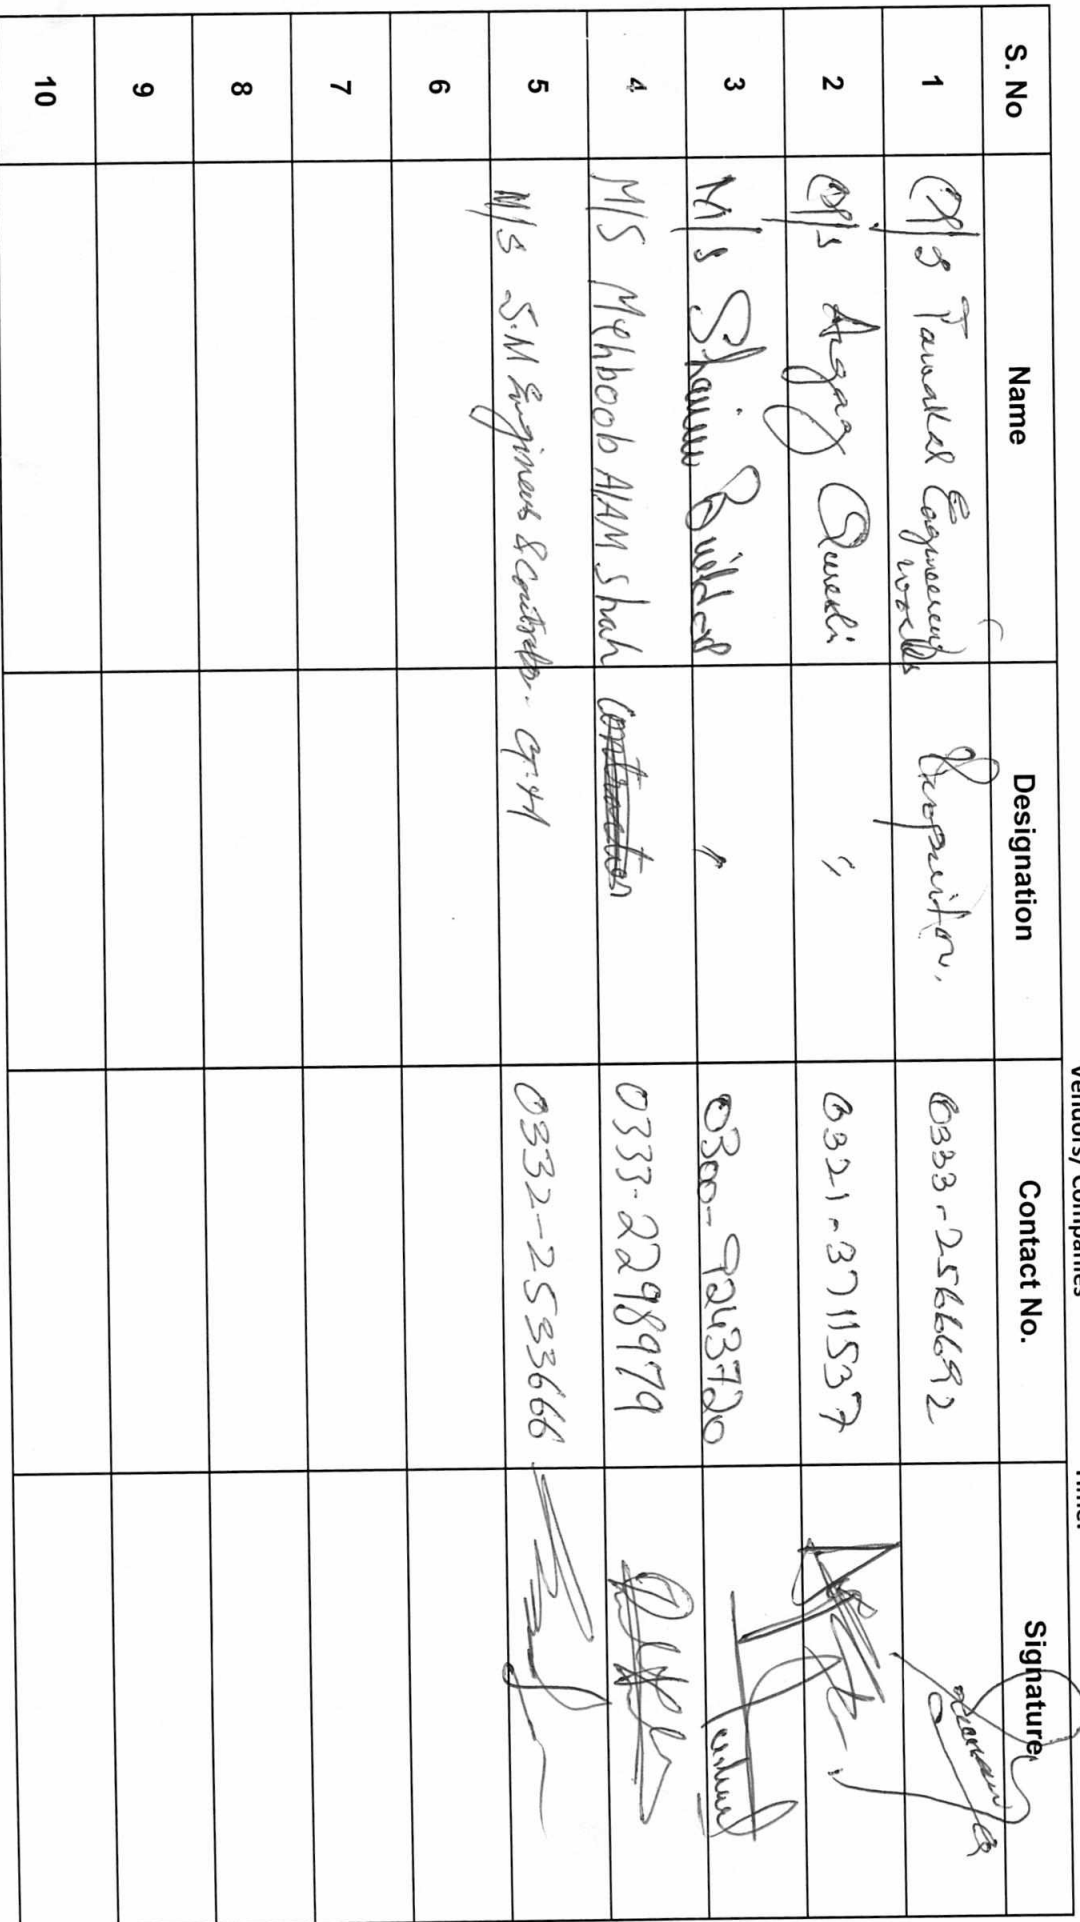 Vendors/ Companies
Time:
S. No Name Designation Contact No. Signature
1 M/s Tawakal Engineering Works 0333-2566692
2 M/s Qureshi " 0321-3711537
3 M/s Shaim Builders " 0300-9243720
4 M/S Mehboob AlAM Shah Contractor 0333-2298979
5 M/s S.M Engineers & Contractor. 0332-2533666
6
7
8
9
10